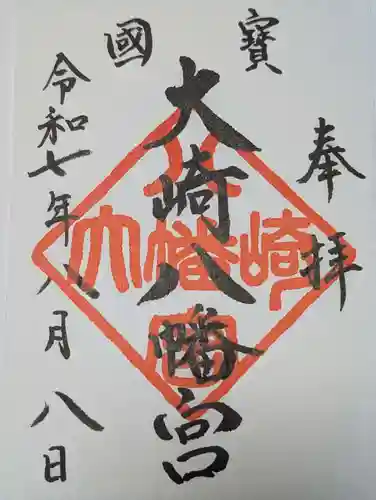 國寶
奉拝
大崎八幡宮
令和七年八月八日
大崎八幡宮